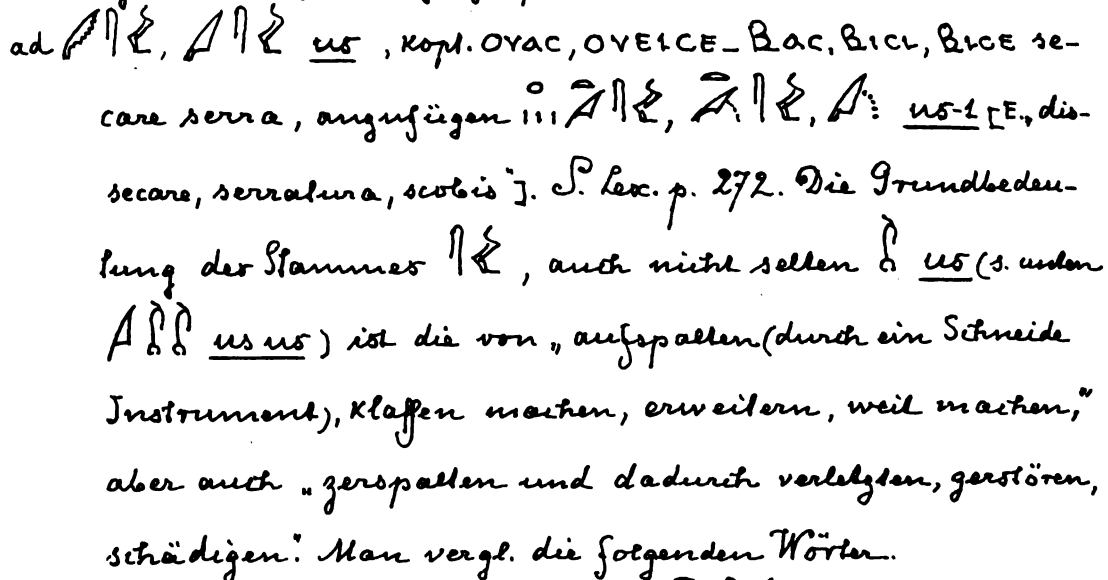 ad , us, kopt. ⲟⲩⲁⲥ, ⲟⲩⲉⲓⲥⲉ – ⲃⲁⲥ, ⲃⲓⲥⲓ, ⲃⲓⲥⲉ se-
care serra, anzufügen , , us-t [E., dis-
secare, serratura, scobis"]. S. Lex. p. 272. Die Grundbedeu-
tung des Stammes , auch nicht selten us (s. unten
us us) ist die von „aufspalten (durch ein Schneide
Instrument), klaffen machen, erweitern, weit machen,"
aber auch „zerspalten und dadurch verletzten, zerstören,
schädigen". Man vergl. die folgenden Wörter.